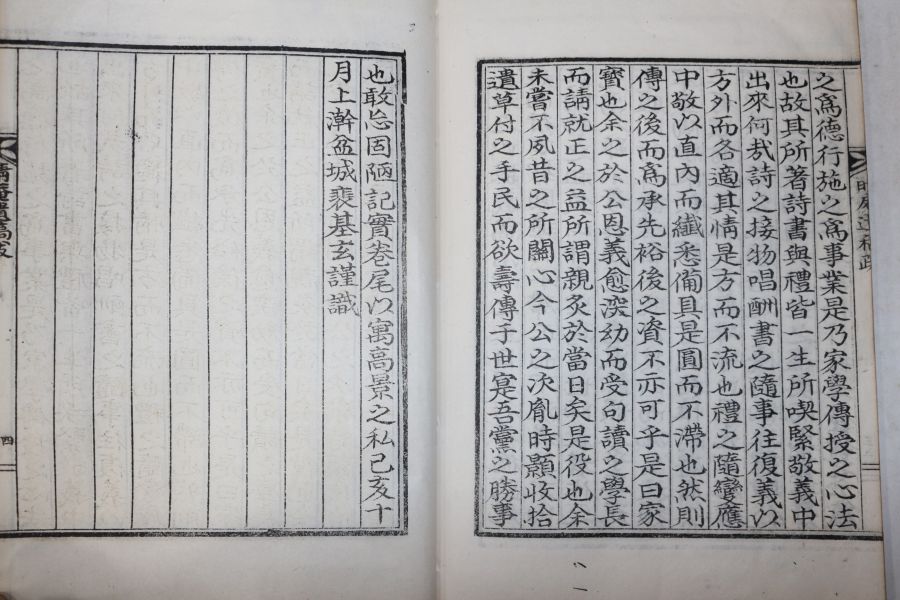 之為德行施之為事業是乃家學傳授之心法
也故其所著詩書與禮皆一生所喫緊敬義中
出來何哉詩之接物唱酬書之隨事往復義以
方外而各適其情是方而不流也禮之隨變應
中敬以直內而纖悉備具是圓而不滯也然則
傳之後而為承先裕後之資不亦可乎是曰家
寶也余之於公恩義愈深幼而受句讀之學長
而請就正之益所謂親炙於當日矣是役也余
未嘗不夙昔之所關心今公之次胤時顯收拾
遺草付之手民而欲壽傳于世寔吾黨之勝事
也敢忘固陋記實卷尾以寓高景之私己亥十
月上澣盆城裴基玄謹識
四